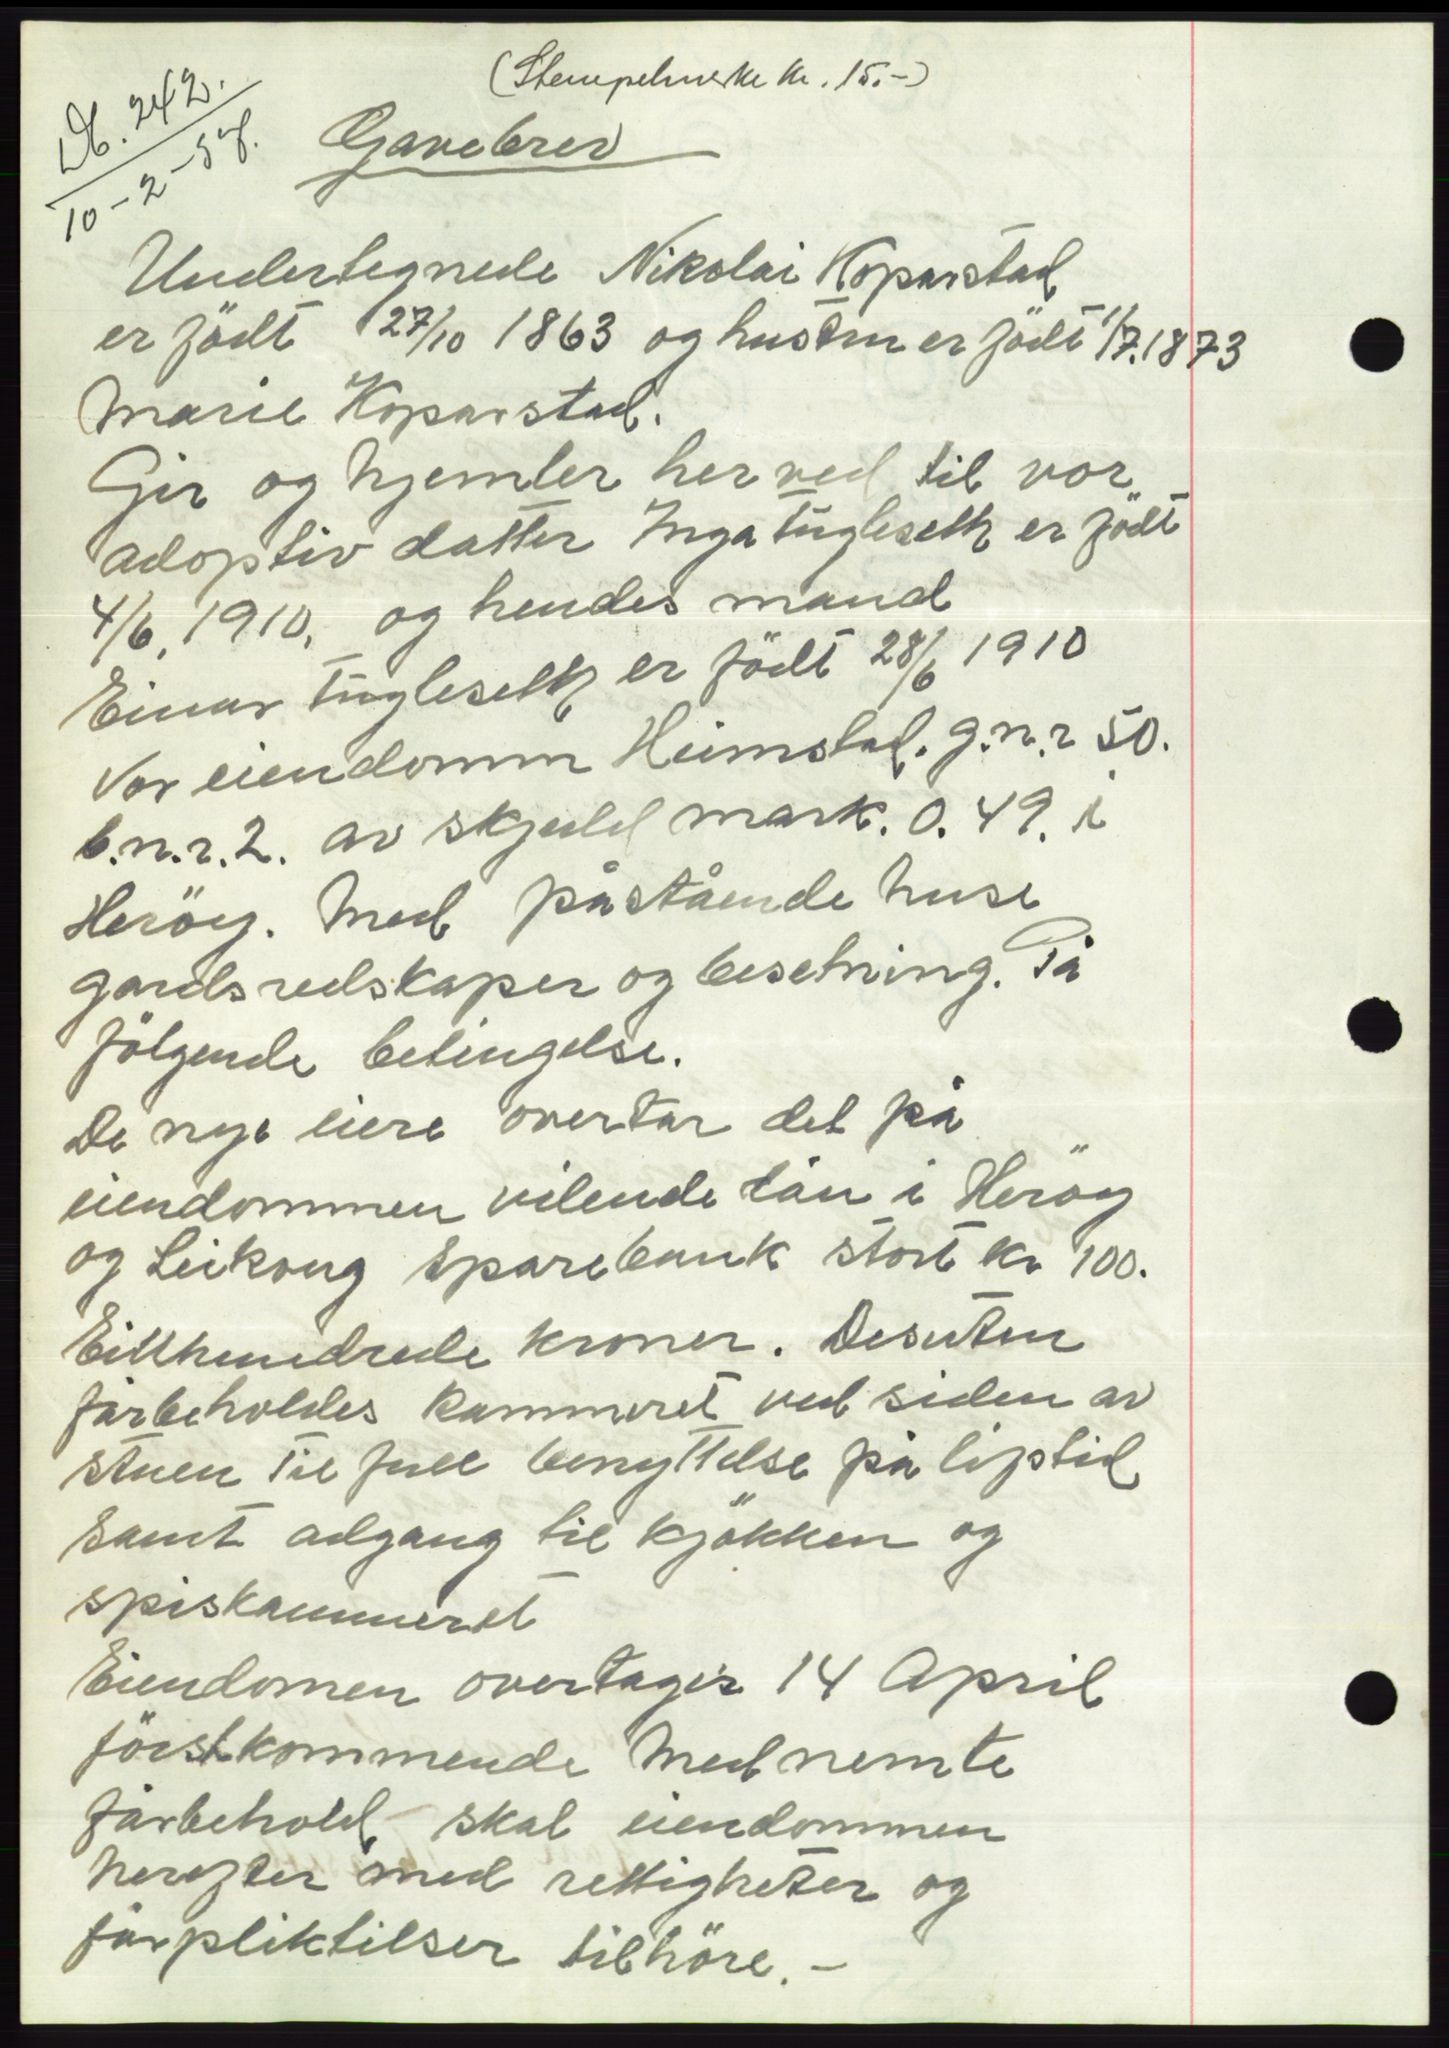 (Stempelmerke kr. 15.-)
Db. 242.
10-2-37.
Gavebrev
Undertegnede Nikolai Koparstad
er födt 27/10 1863 og hustru er födt 1/7.1873
Marie Koparstad.
Gir og hjemler her ved til vor
adoptiv datter Inga Fugleseth er födt
4/6. 1910. og hendes mand
Einar Fugleseth er födt 28/6 1910
Vor eiendomm Heimstad. g.n.r 50.
b.n.r.2. av skjuld mark. 0.49. i
Heröy. Med påstående huse
gardsredskaper og besetning. På
fölgende betingelse.
De nye eiere overtar det på
eiendommen vilende lån i Heröy
og Leikong Sparebank stort kr 100.
Eitthundrede kroner. Desuten
førbeholdes kammeret ved siden av
stuen til full benyttelse på liftid
samt adgang til kjökken og
spiskammeret
Eiendomen overtages 14 April
förstkommende Med nemte
førbehold skal eiendommen
herefter med rettigheter og
førpliktilser tilhöre. -